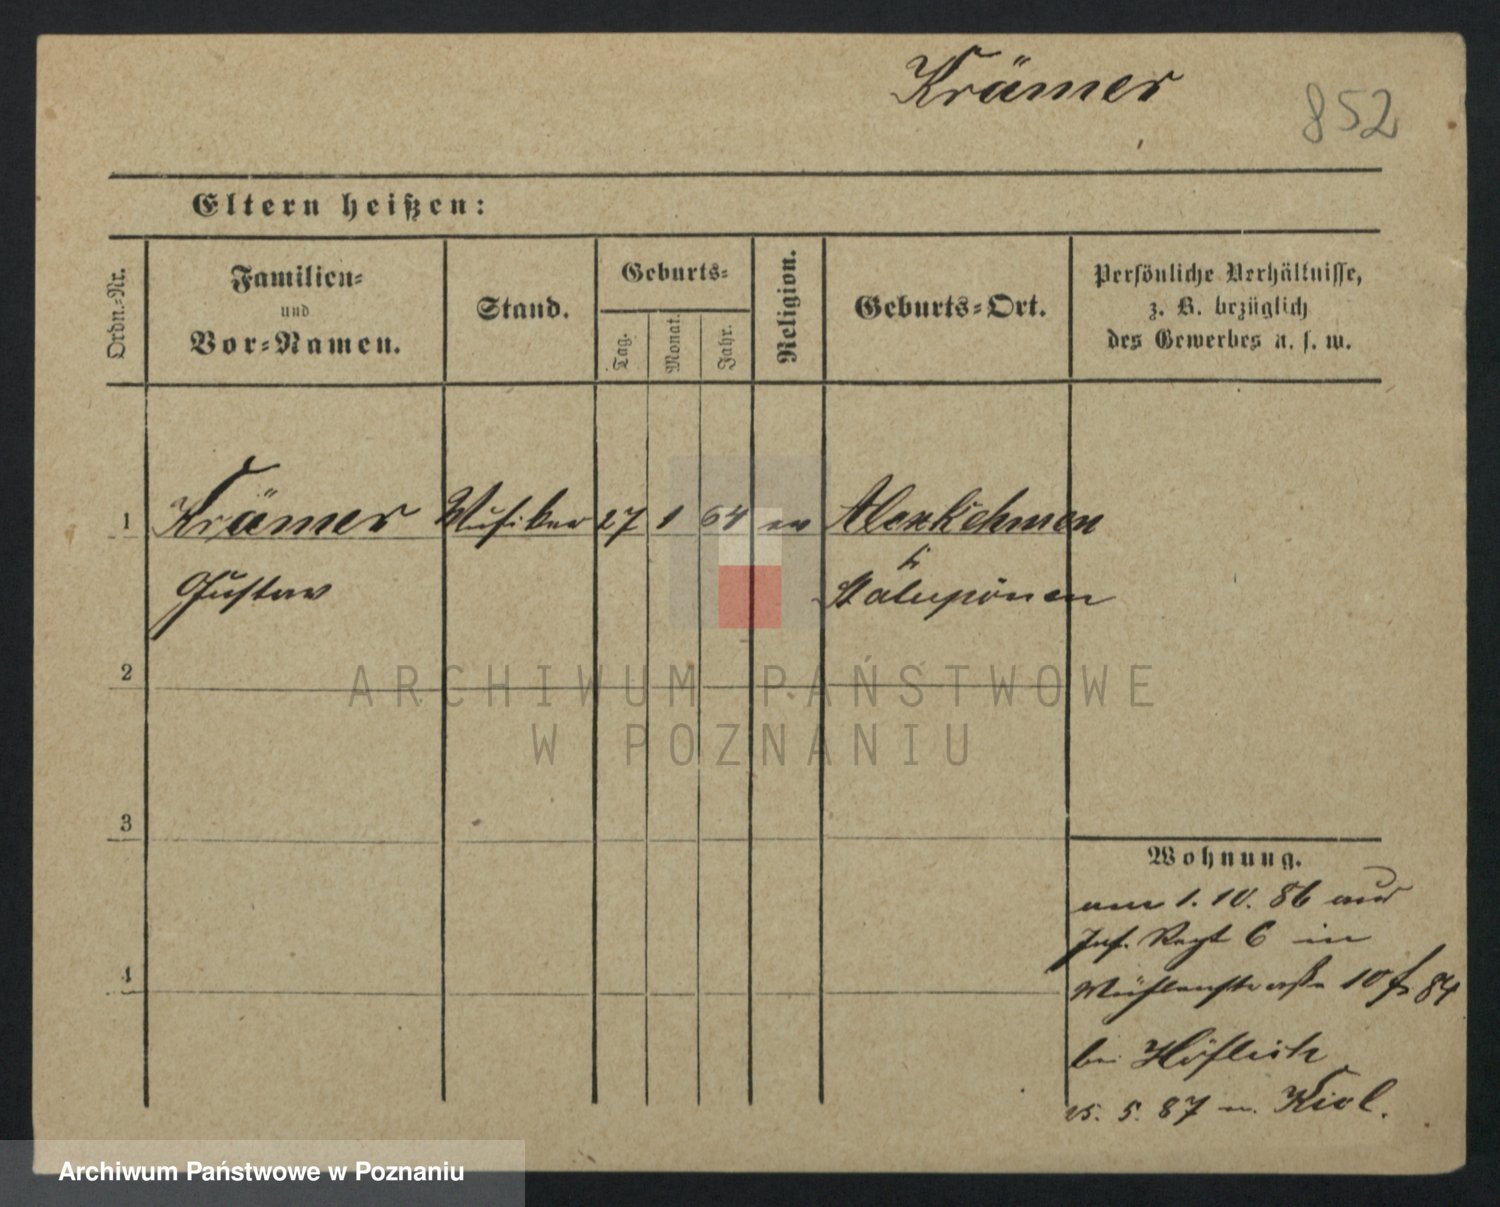 Krämer
852
Eltern heißen:
Ordn.-Nr.
Familien-
und
Vor-Namen.
Stand.
Geburts-
Tag.
Monat.
Jahr.
Religion.
Geburts-Ort.
Persönliche Verhältnisse,
z. B. bezüglich
des Gewerbes u. s. w.
1 Krämer Musiker 27 1 64 ev Alexkehmen
Gustav
Staluponen
2
3
4
Wohnung.
am 1. 10. 86 aus
Inf. Regt 6 in
Mühlenstraße 10
bei Höflich
15. 5. 87 n. Kiel.
ARCHIWUM PAŃSTWOWE
W POZNANIU
Archiwum Państwowe w Poznaniu